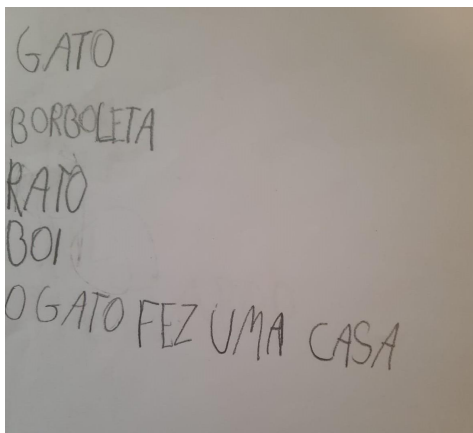 GATO
BORBOLETA
RATO
BOI
O GATO FEZ UMA CASA